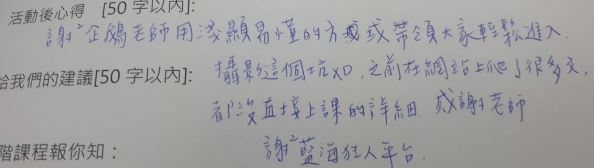 活動後心得 [50字以內]:
謝²企鵝老師用淺顯易懂的方式帶領大家輕鬆進入
攝影這個坑XD,之前在網站上爬了很多文,
給我們的建議[50字以內]:
都沒直接上課的詳細.感謝老師
謝²藍海狂人平台.
階課程報你知: